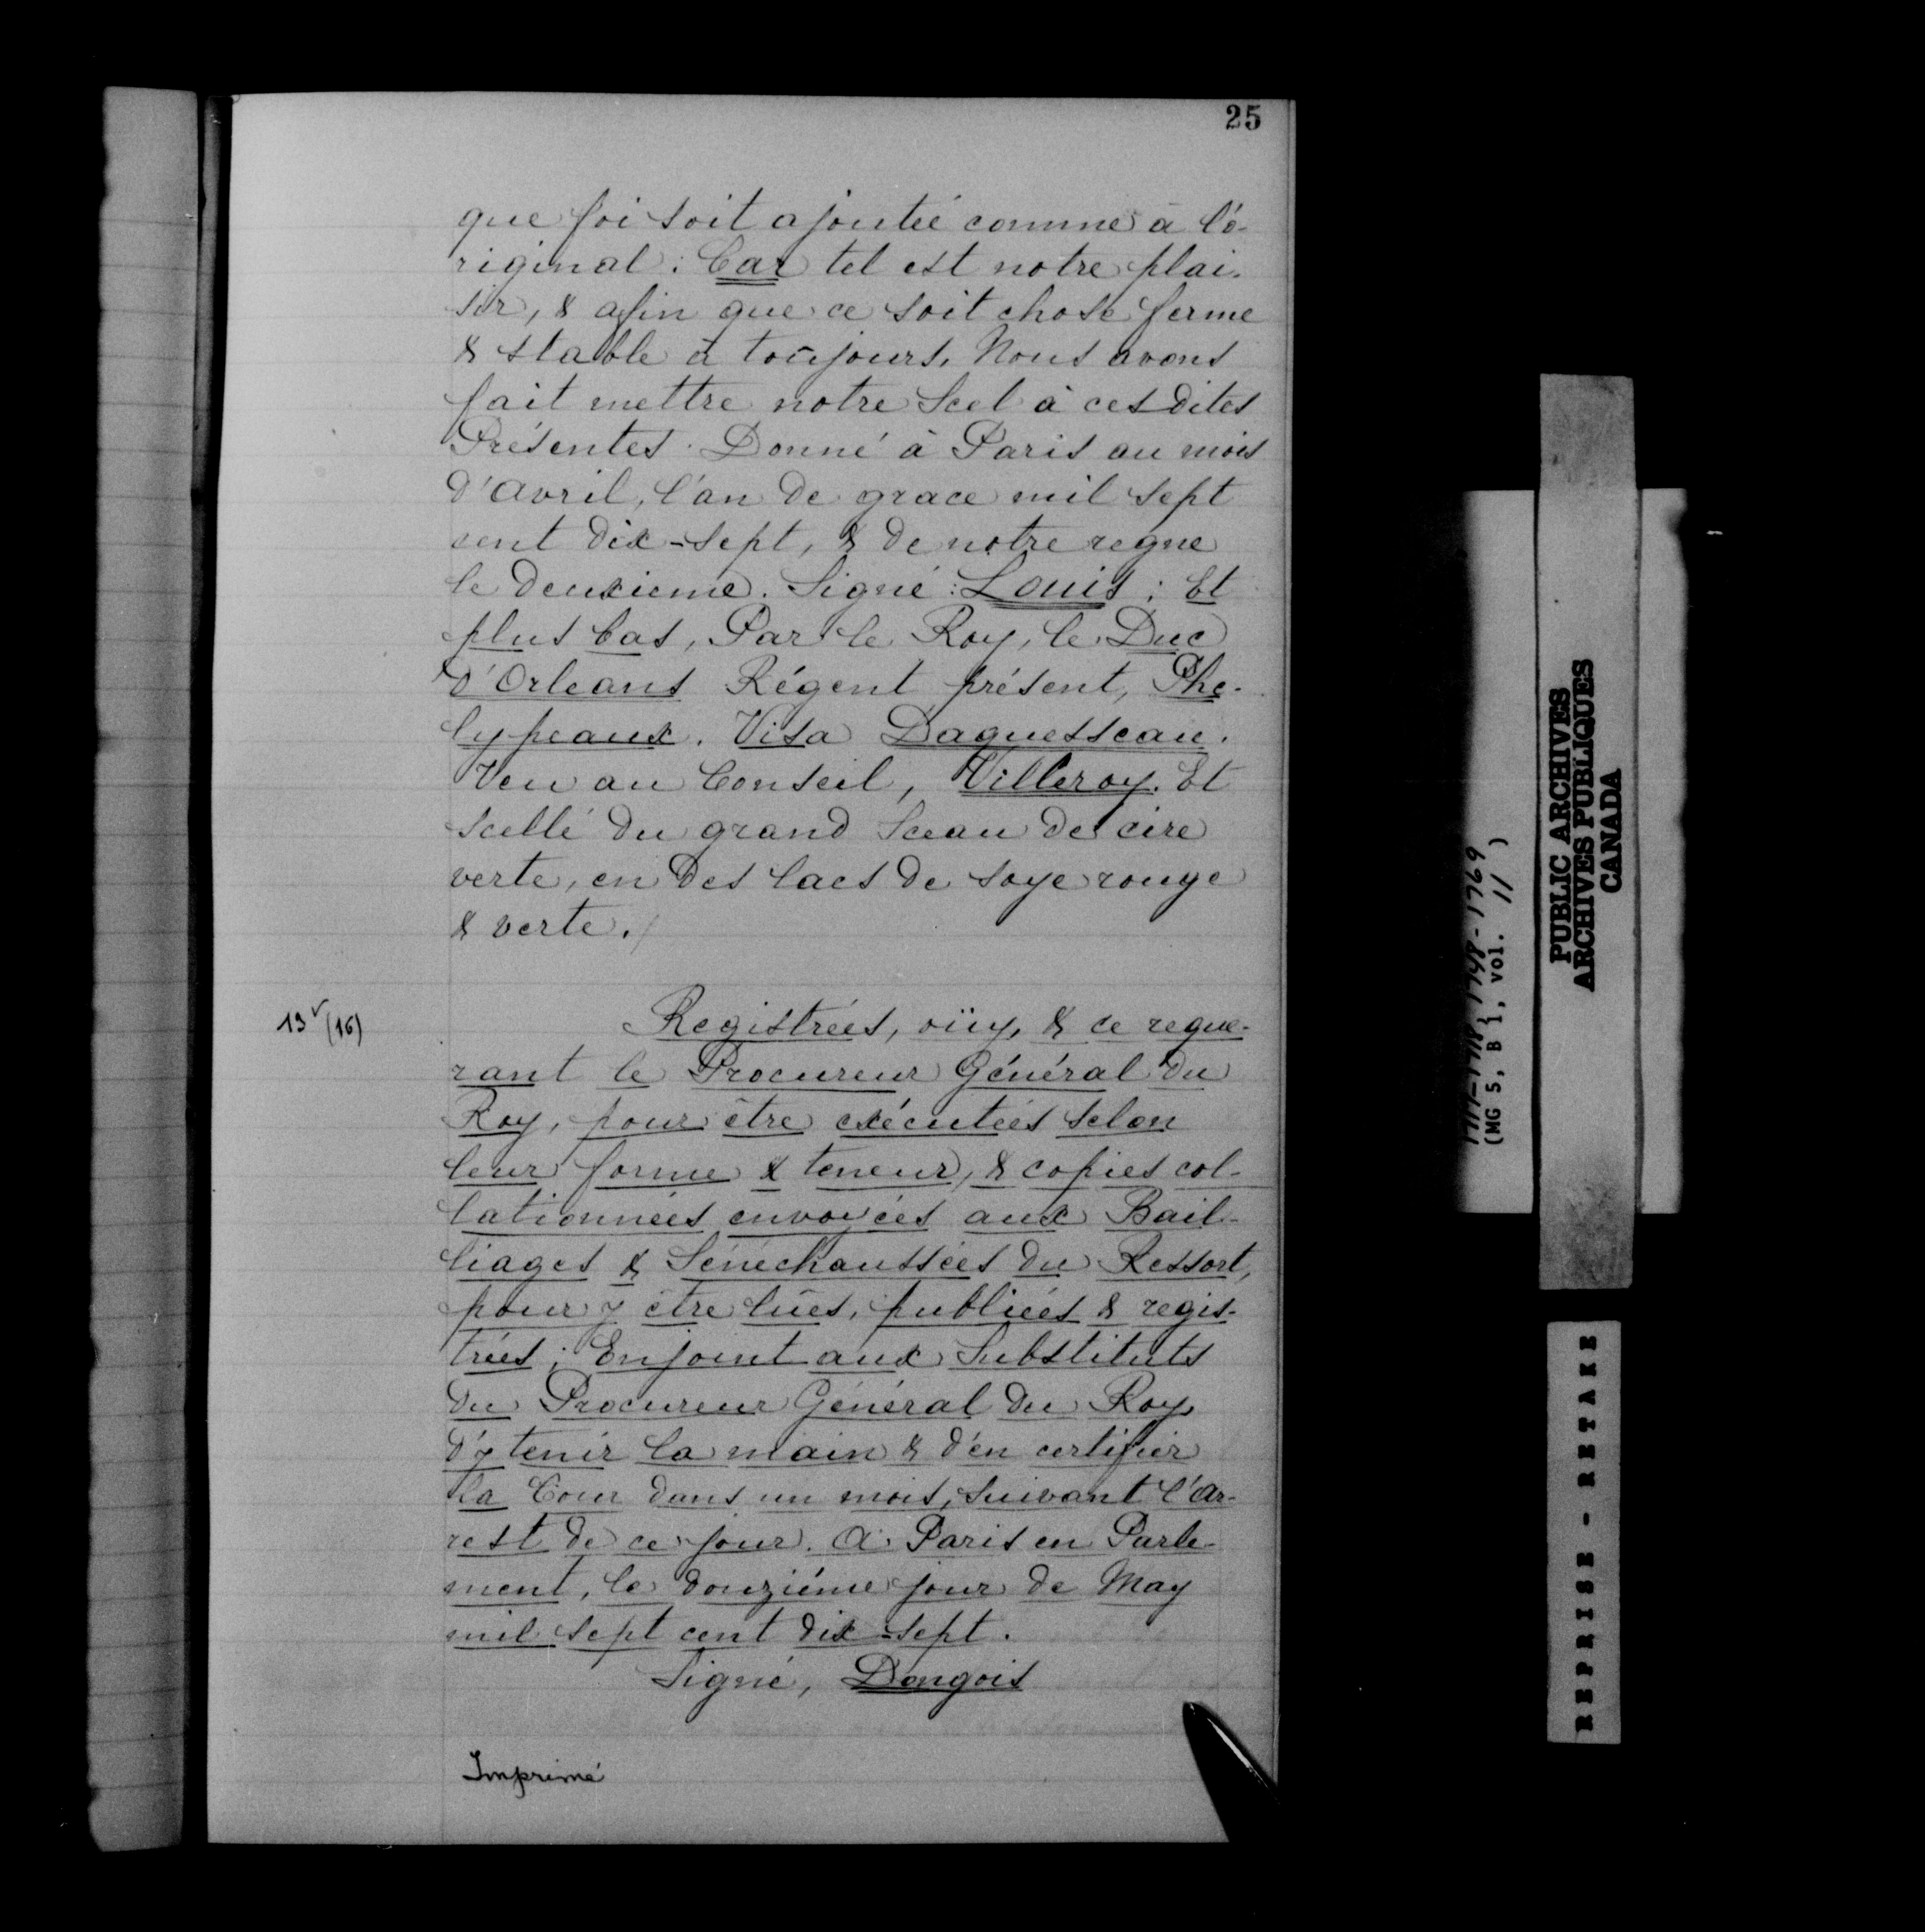 25
que foi soit ajoutée comme à l'o-
riginal : Car tel est notre plai-
sir, & afin que ce soit chose ferme
& stable à toûjours, Nous avons
fait mettre notre Scel à ces dites
Présentes. Donné à Paris au mois
d'Avril, l'an de grace mil sept
cent dix-sept, & de notre regne
le deuxieme. Signé : Louis ; Et
plus bas, Par le Roy, le Duc
d'Orleans Régent présent, Phe-
lypeaux. Visa Daguesseau.
Veu au Conseil, Villeroy. Et
scellé du grand Sceau de cire
verte, en des lacs de soye rouge
& verte.
13v (16)
Registrées, oüy, & ce reque-
rant le Procureur Général du
Roy, pour être exécutées selon
leur forme & teneur, & copies col-
lationnées envoyées aux Bail-
liages & Sénéchaussées du Ressort,
pour y être lûes, publiées & regis-
trées ; Enjoint aux Substituts
du Procureur Général du Roy,
d'y tenir la main & d'en certifier
la Cour dans un mois, suivant l'Ar-
rest de ce jour. A Paris en Parle-
ment, le douziéme jour de May
mil sept cent dix-sept.
Signé, Dongois
Imprimé
1768-1769
(MG 5, B 1, vol. 11 )
PUBLIC ARCHIVES
ARCHIVES PUBLIQUES
CANADA
REPRISE - RETAKE